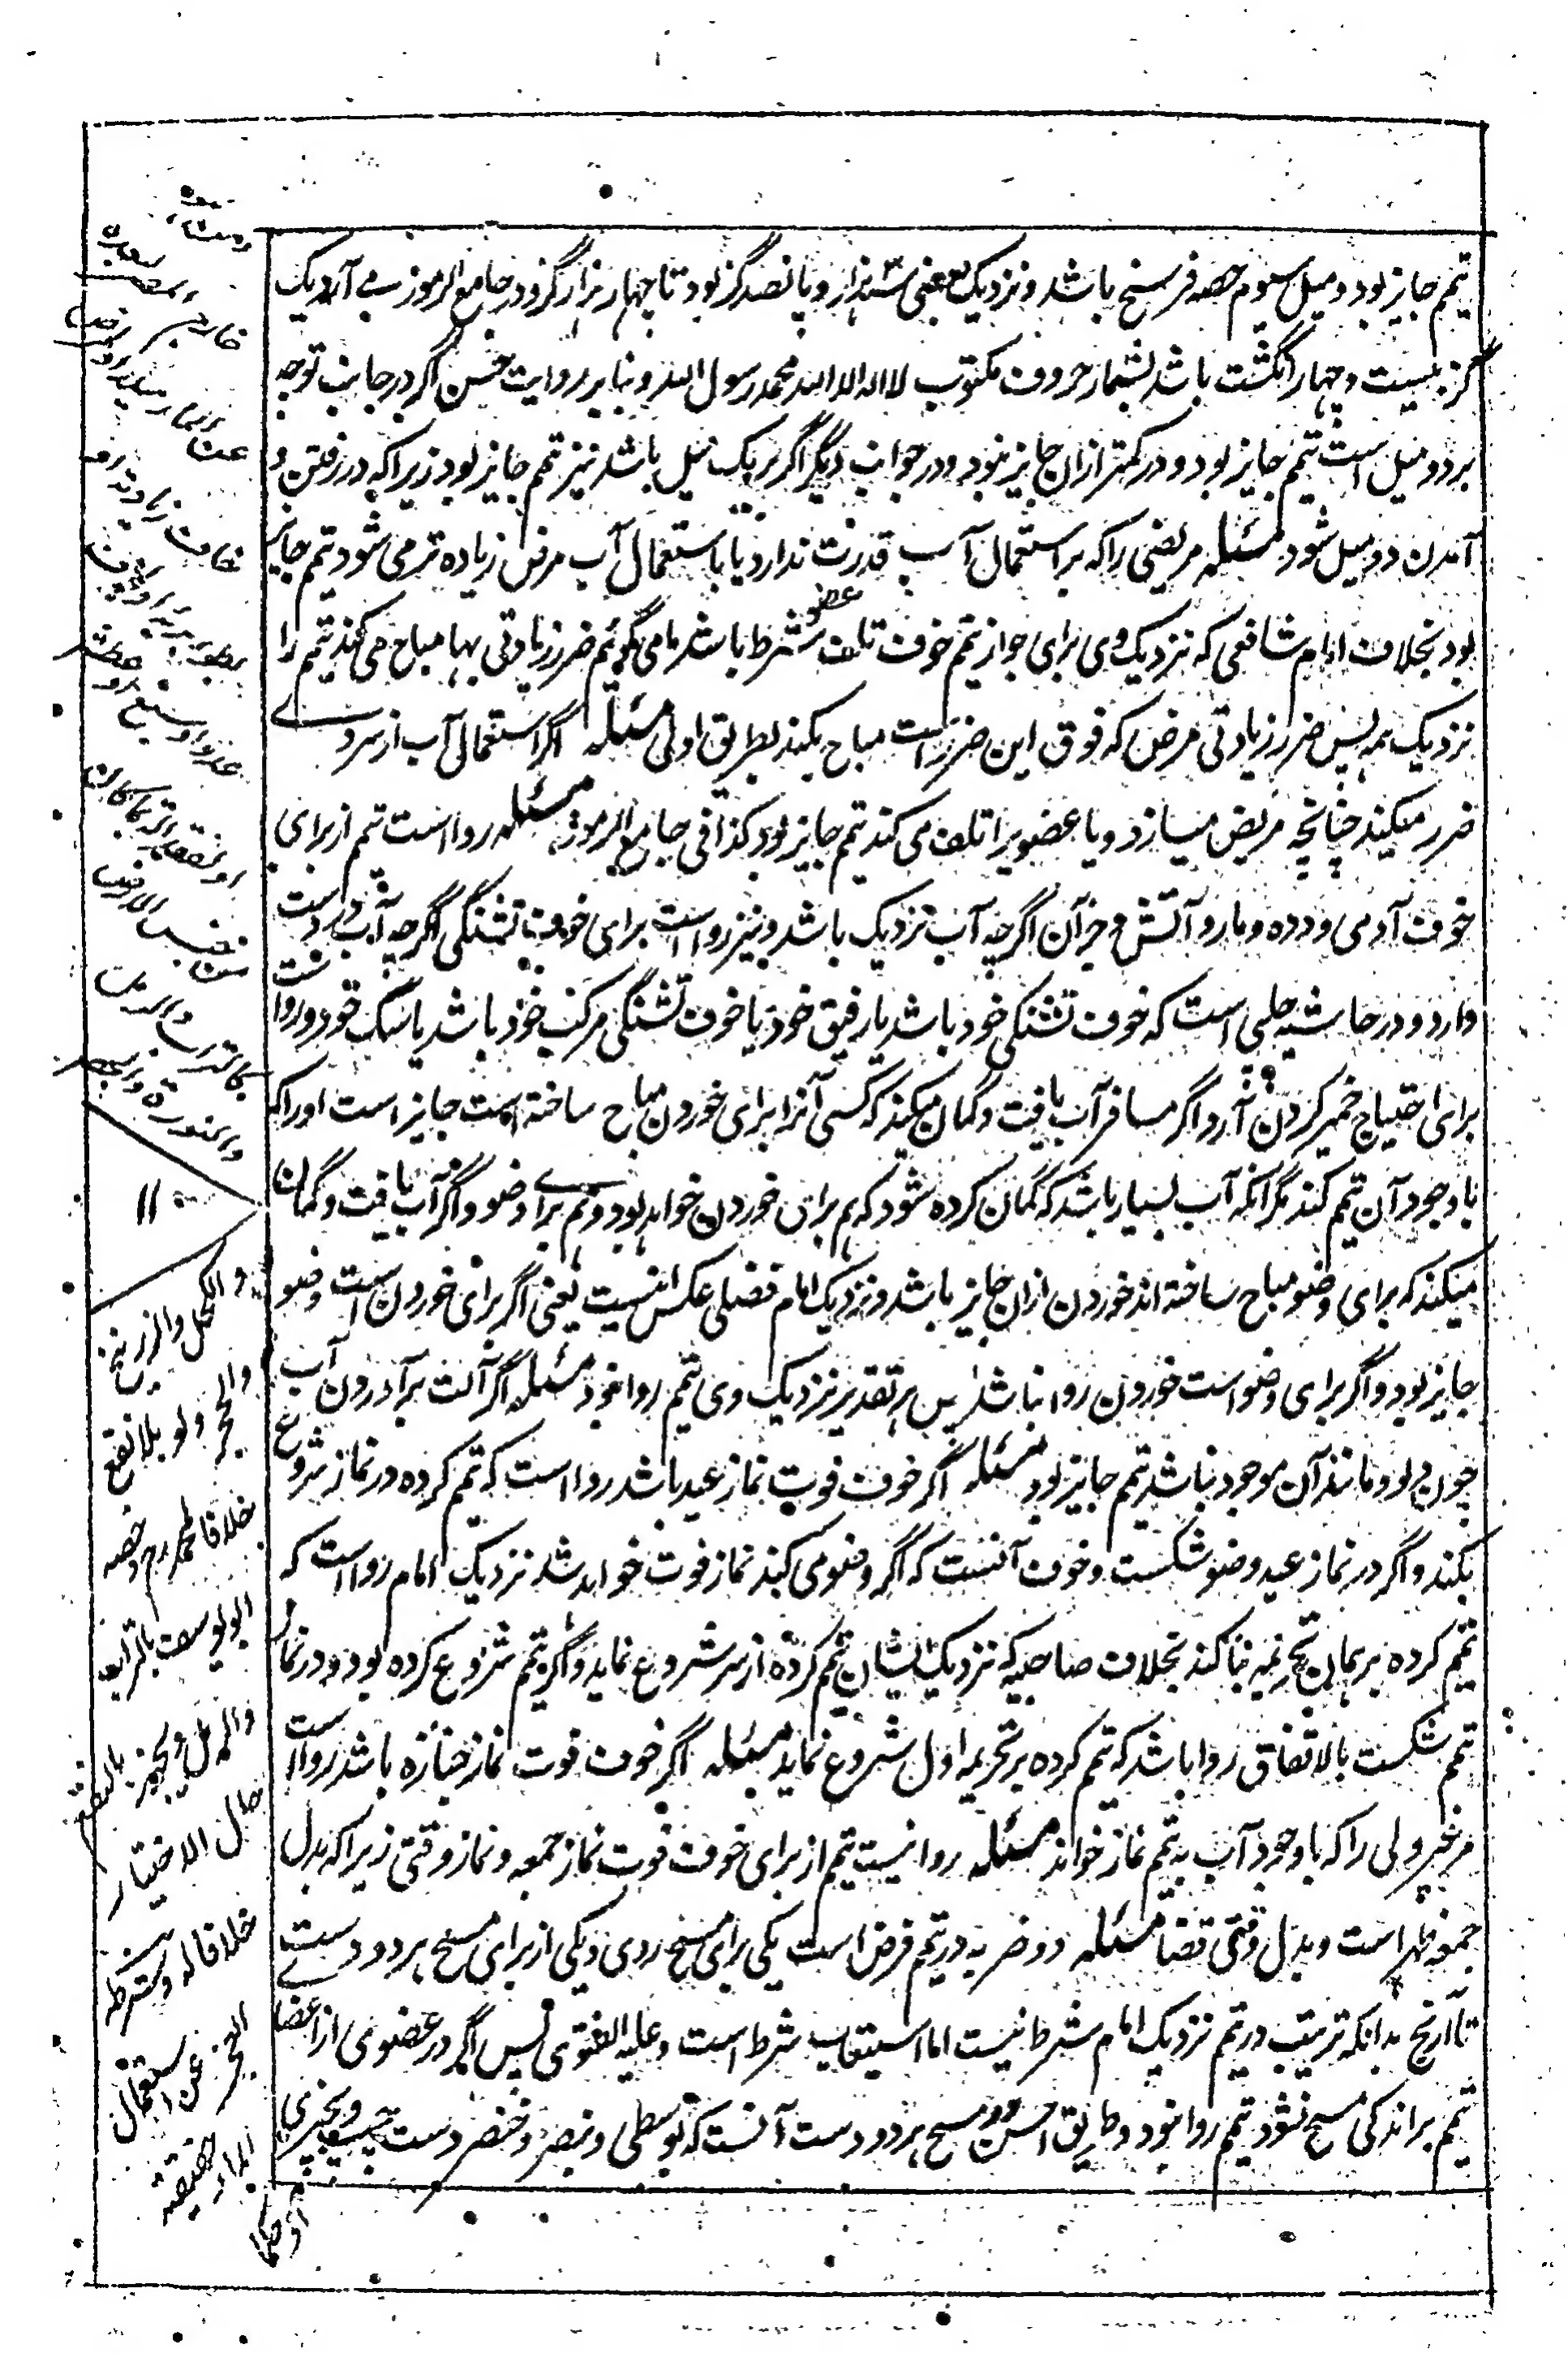 تیمم جایز بود و میل سیوم حصه فرسخ باشد و نزدیک بعضی سه هزار و پانصد گز بود تا چهار هزار گز و در جامع الرموز می آرد یک
گز بیست و چهار انگشت باشد بشمار حروف مکتوب لا اله الا الله محمد رسول الله و بنا بر روایت حسن اگر در جانب توجه
بر دو میل است تیمم جایز بود و در کمتر ازان جایز نبود و در جوانب دیگر اگر بر یک میل باشد نیز تیمم جایز بود زیرا که در رفتن و
آمدن دو میل شود مسئله مریضی را که بر استعمال آب قدرت ندارد یا باستعمال آب مرض زیاده تر می شود تیمم جایز
بود بخلاف امام شافعی که نزدیک وی برای جواز تیمم خوف تلف عضو شرط باشد ما می گوئیم ضرر زیادتی بها مباح می کند تیمم را
نزدیک همه پس ضرر زیادتی مرض که فوق این ضرر است مباح بکند بطریق اولی مسئله اگر استعمال آب از سردے
ضرر میکند چنانچه مریض میسازد و یا عضویرا تلف می کند تیمم جایز بود کذا فی جامع الرموز مسئله روا است تیمم از برای
خوف آدمی و دده و مار و آتش و جز آن اگرچه آب نزدیک باشد و نیز روا است برای خوف تشنگی اگرچه آب در دست
دارد و در حاشیه چلپی است که خوف تشنگی خود باشد یا رفیق خود یا خوف تشنگی مرکب خود باشد یا سگ خود و روا است
برای احتیاج خمیر کردن آرد اگر مسافر آب یافت و گمان میکند که کسی آنرا برای خوردن مباح ساخته است جایز است او را که
با وجود آن تیمم کند مگر آنکه آب بسیار باشد که گمان کرده شود که هم برای خوردن خواهد بود و هم برای وضو و اگر آب یافت و گمان
میکند که برای وضو مباح ساخته اند خوردن ازان جایز باشد و نزدیک امام فضلی عکس اینست یعنی اگر برای خوردن است وضو
جایز بود و اگر برای وضو است خوردن روا نباشد پس بر تقدیر نزدیک وی تیمم روا نبود مسئله اگر آلت برآوردن آب
چون دلو و مانند آن موجود نباشد تیمم جایز بود مسئله اگر خوف فوت نماز عید باشد روا است که تیمم کرده در نماز شروع
بکند و اگر در نماز عید وضو شکست و خوف آنست که اگر وضو می کند نماز فوت خواهد شد نزدیک امام روا است که
تیمم کرده بر همان تحریمه بنا کند بخلاف صاحبیه که نزدیک ایشان تیمم کرده از سر شروع نماید و اگر به تیمم شروع کرده بود و در نماز
تیمم شکست بالاتفاق روا باشد که تیمم کرده بر تحریمه اول شروع نماید مسئله اگر خوف فوت نماز جنازه باشد روا است
مر غیر ولی را که با وجود آب به تیمم نماز خواند مسئله روا نیست تیمم از برای خوف فوت نماز جمعه و نماز وقتی زیرا که بدل
جمعه ظهر است و بدل وقتی قضا مسئله دو ضربه در تیمم فرض است یکی برای مسح روی و یکی از برای مسح هر دو دست
تا آرنج بدانکه ترتیب در تیمم نزدیک امام شرط نیست اما استیعاب شرط است و علیه الفتوی پس اگر در عضوی از اعضای
تیمم بر اندکی مسح نشود تیمم روا نبود و طریق احسن مسح هر دو دست آنست که بوسطی و بنصر و خنصر دست چپ
عن
۱۱
والکحل والزرنیخ
والحجر ولو بلا نقع
خلافا لمحمد رح و خصه
ابو یوسف بالتراب
والرمل و یجوز بالنقع
حال الاختیار
خلافا له وشرطه
العجز عن استعمال
الماء حقیقة
او حکما